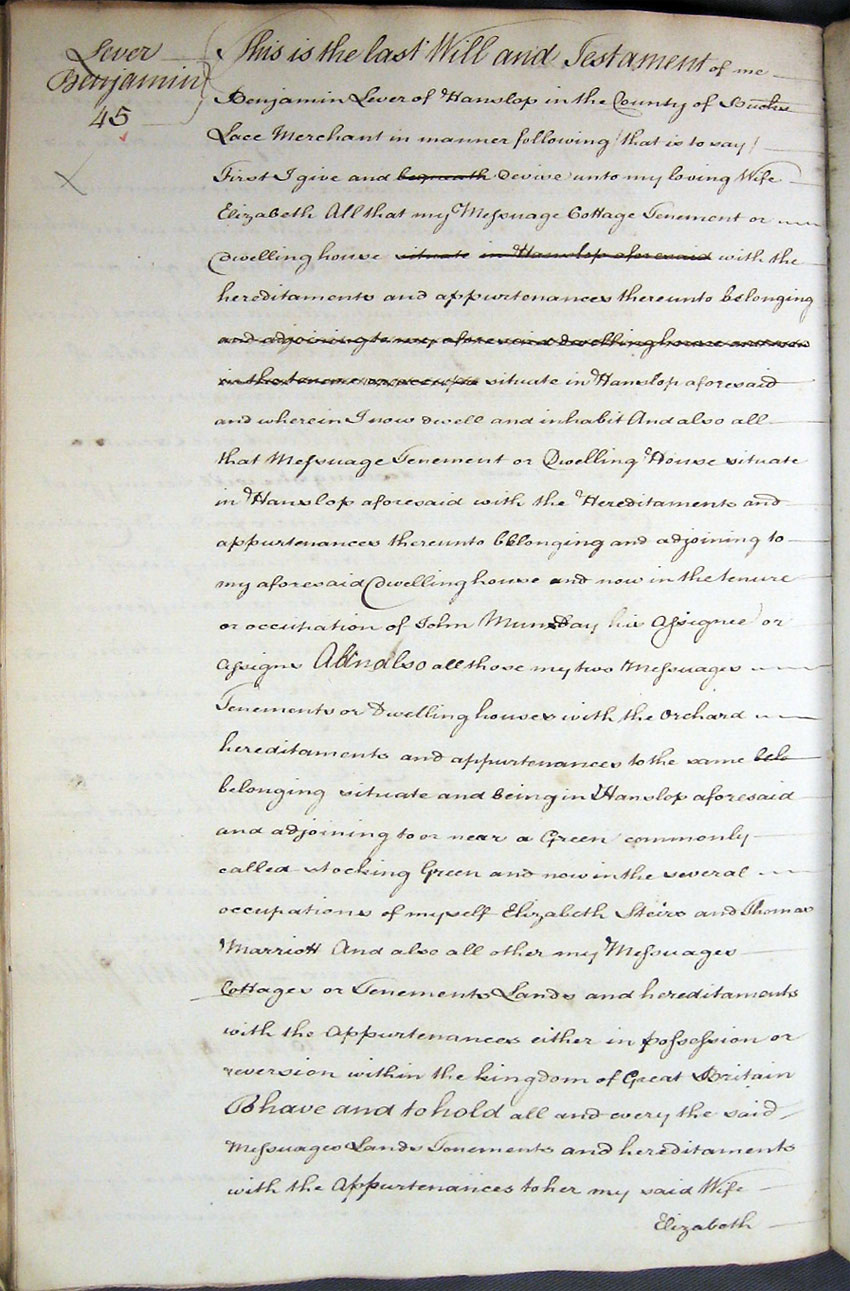 Lever
Benjamin
45
This is the last Will and Testament of me
Benjamin Lever of Hanslop in the County of Bucks
Lace Merchant in manner following (that is to say)
First I give and bequeath devise unto my loving Wife
Elizabeth All that my Messuage Cottage Tenement or
Dwellinghouse situate in Hanslop aforesaid with the
hereditaments and appurtenances thereunto belonging
and adjoining to my aforesaid Dwellinghouse and now
in the tenure or situate in Hanslop aforesaid
and wherein I now dwell and inhabit And also all
that Messuage Tenement or Dwelling House situate
in Hanslop aforesaid with the Hereditaments and
appurtenances thereunto belonging and adjoining to
my aforesaid Dwellinghouse and now in the tenure
or occupation of John Munday his Assignee or
Assigns And also all those my two Messuages
Tenements or Dwellinghouses with the Orchard
hereditaments and appurtenances to the same belo
belonging situate and being in Hanslop aforesaid
and adjoining to or near a Green commonly
called Stocking Green and now in the several
occupations of myself Elizabeth Steirs and Thomas
Marriott And also all other my Messuages
Cottages or Tenements Lands and hereditaments
with the Appurtenances either in possession or
reversion within the kingdom of Great Britain
have and to hold all and every the said
Messuages Lands Tenements and hereditaments
with the Appurtenances to her my said Wife
Elizabeth